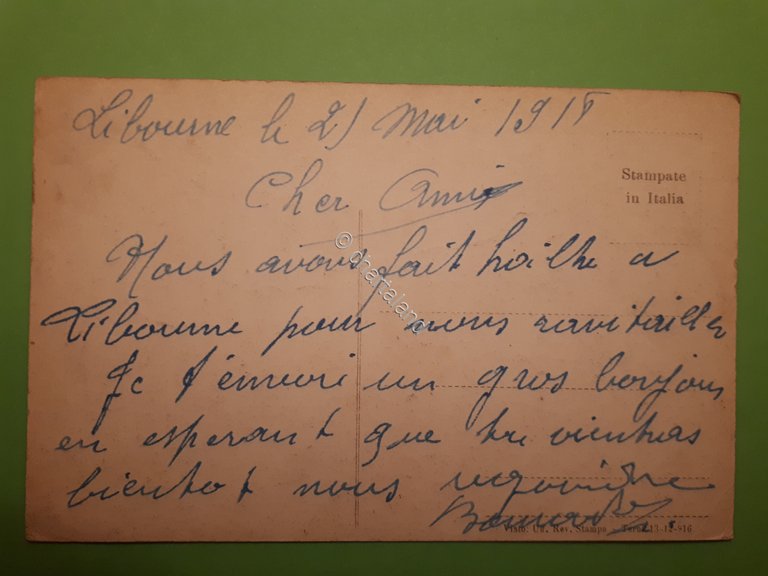 Libourne le 21 Mai 1918
Cher Ami
Stampate
in Italia
© chaptalanc
Nous avons fait hailte a
Libourne pour nous ravitailler
Je t'envoi un gros bonjour
en esperant que tu viendras
bientot nous rejoindre
Visto: Uff. Rev. Stampa - Torino 13-12-916